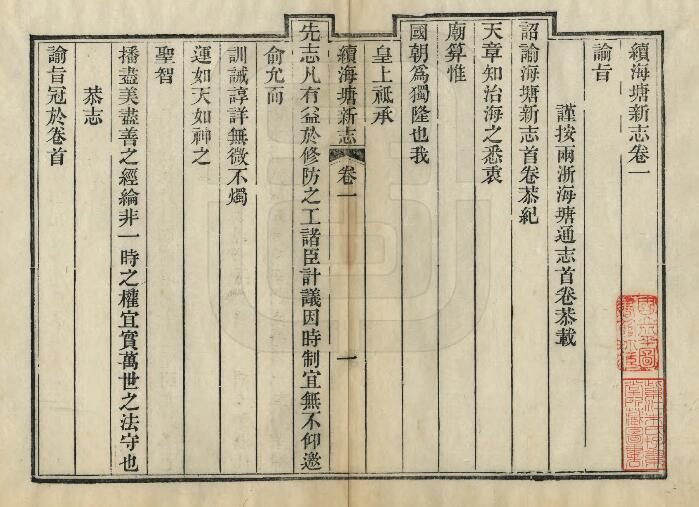 續海塘新志卷一
諭旨
謹按兩浙海塘通志首卷恭載
詔諭海塘新志首卷恭紀
天章知治海之悉衷
廟算惟
國朝為獨隆也我
皇上祗承
續海塘新志 卷一 一
先志凡有益於修防之工諸臣計議因時制宜無不仰邀
俞允而
訓誡諄詳無微不燭
運如天如神之
聖智
播盡美盡善之經綸非一時之權宜實萬世之法守也
恭志
諭旨冠於卷首